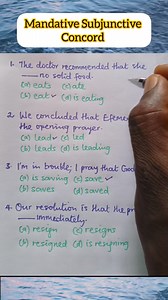 Mandative Subjunctive
Concord
1. The doctor recommended that she
no solid food.
(a) eats (c) ate
(b) eat ✓ (d) is eating
2. We concluded that
the opening prayer.
(a) lead (c) led
(b) leads (d) is leading
3. I'm in trouble; I pray that God
(a) is saving (c) save ✓
(b) saves (d) saved
4. Our resolution is that the
immediately.
(a) resign (c) resigns
(b) resigned (d) is resigning